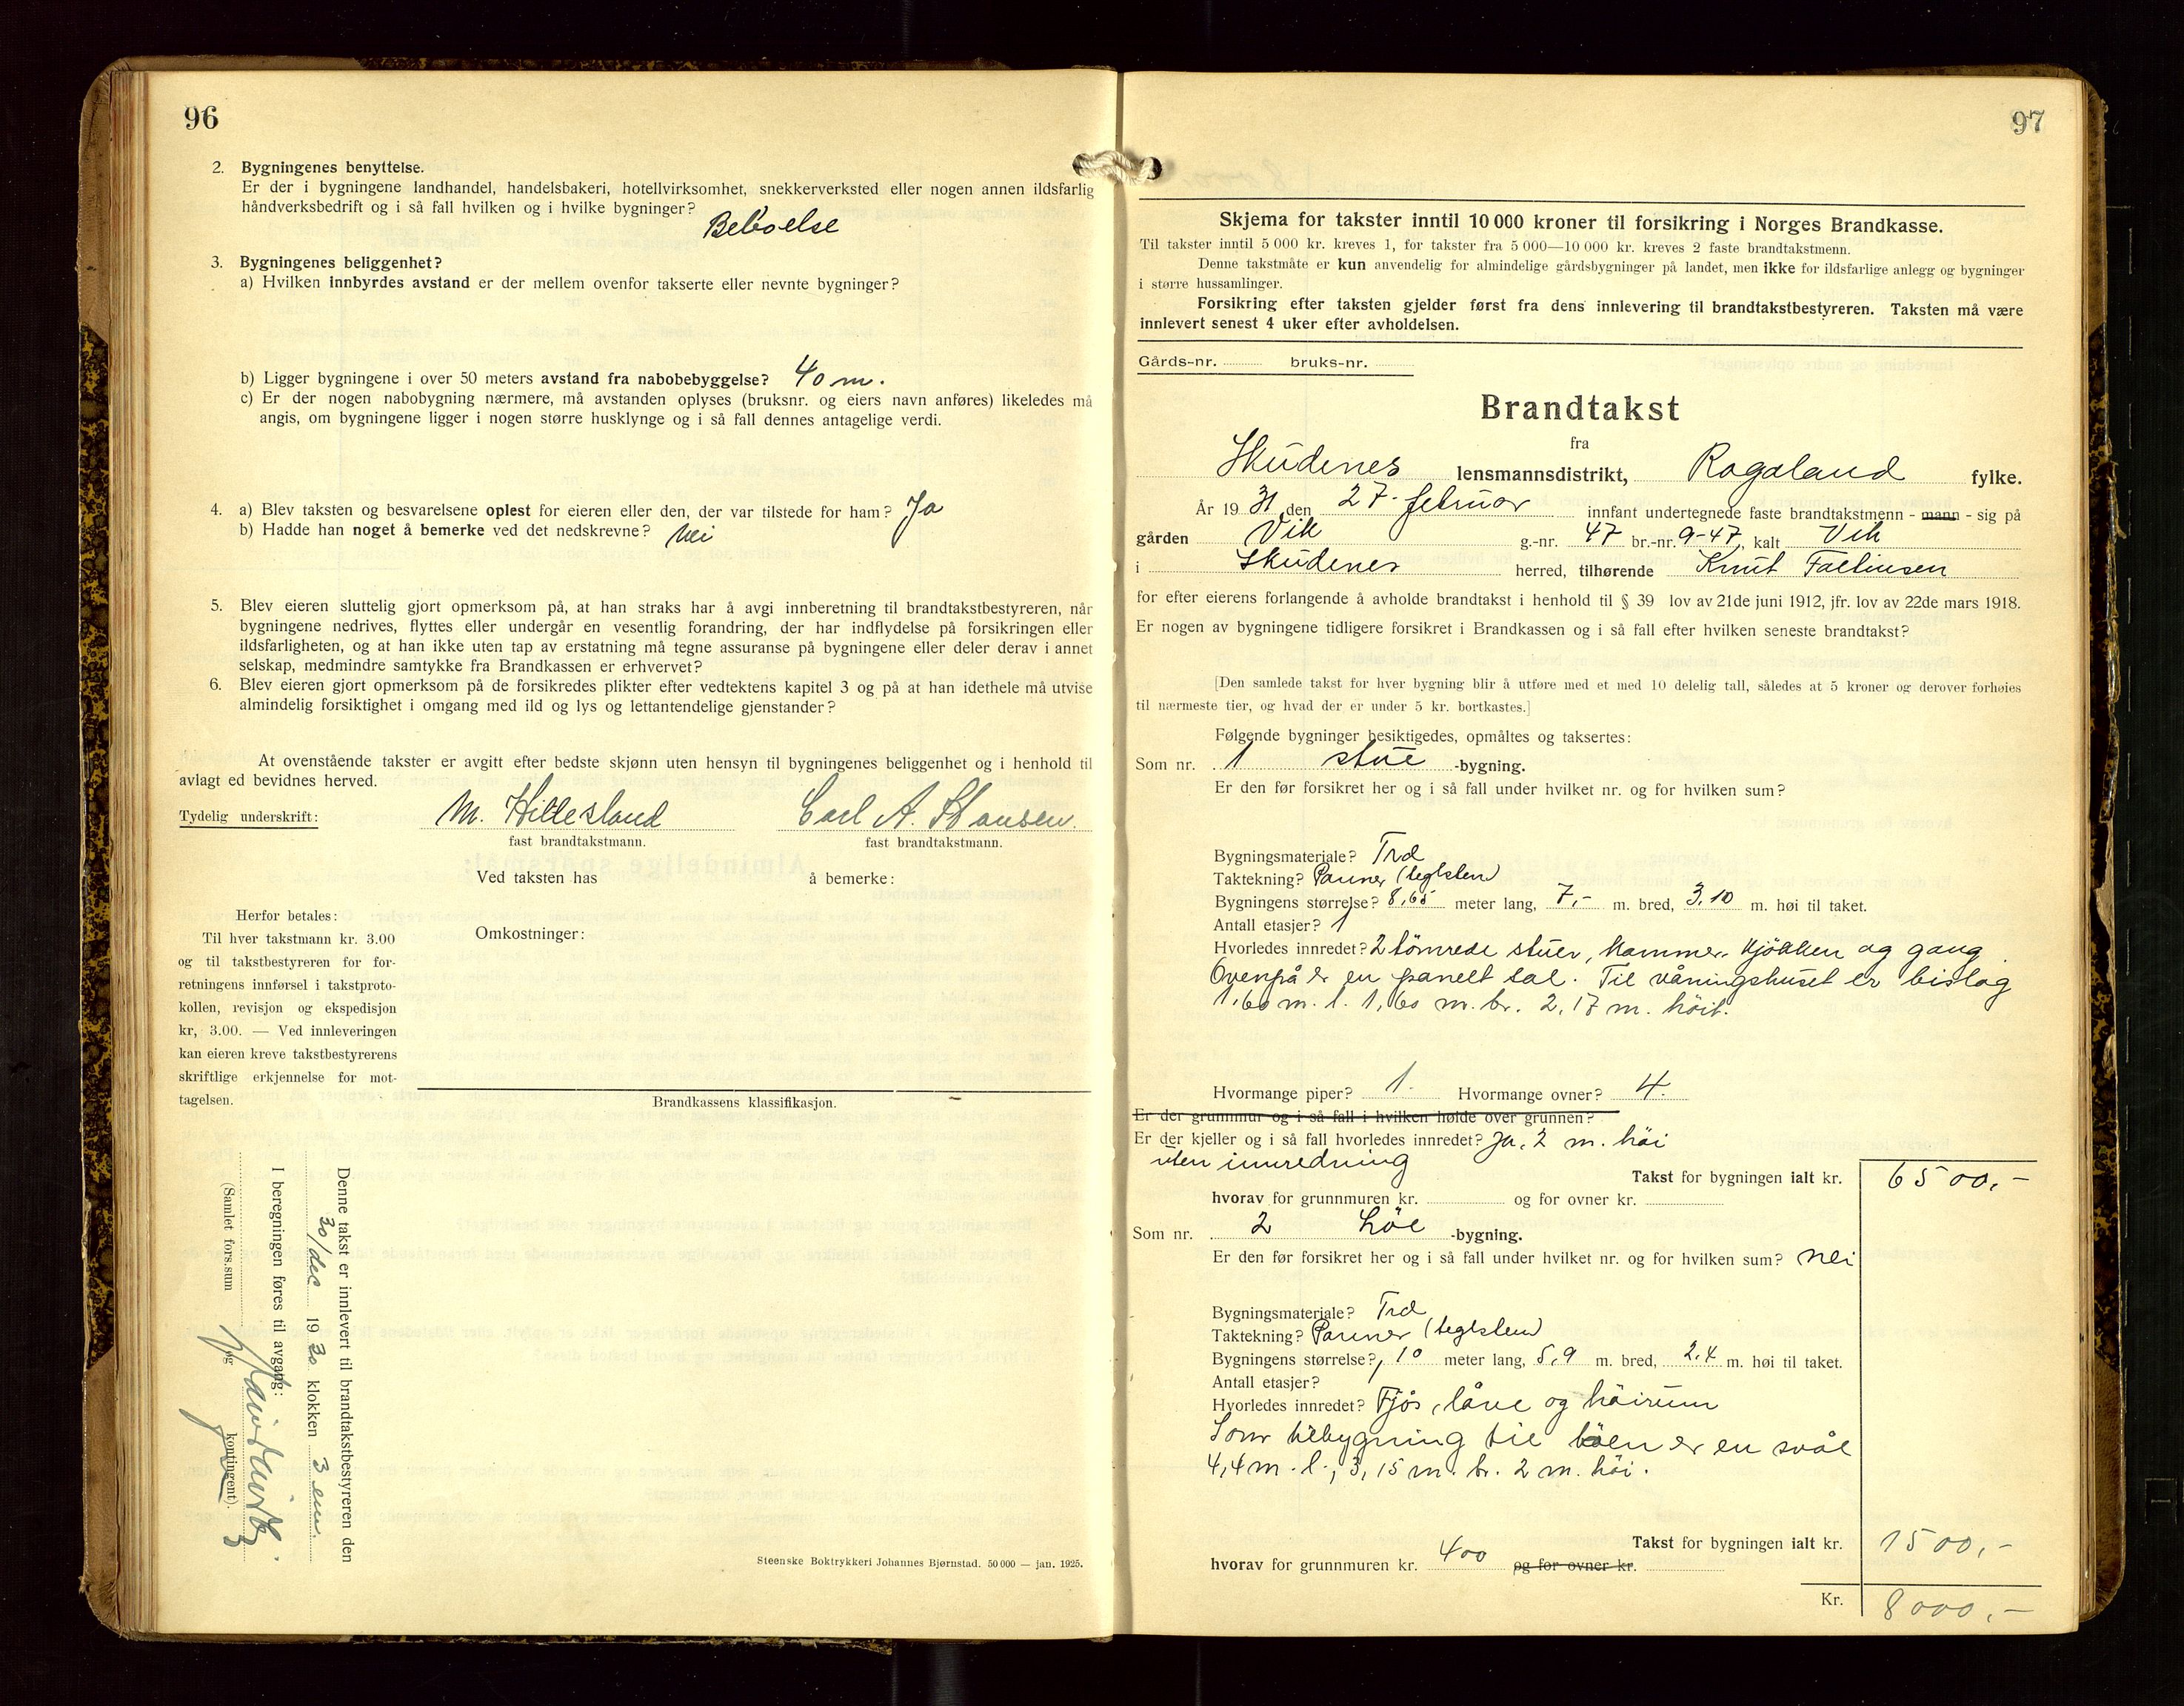 96
2. Bygningenes benyttelse.
Er der i bygningene landhandel, handelsbakeri, hotellvirksomhet, snekkerverksted eller nogen annen ildsfarlig
håndverksbedrift og i så fall hvilken og i hvilke bygninger?
Beboelse
3. Bygningenes beliggenhet?
a) Hvilken innbyrdes avstand er der mellem ovenfor takserte eller nevnte bygninger?
b) Ligger bygningene i over 50 meters avstand fra nabobebyggelse? 40 m.
c) Er der nogen nabobygning nærmere, må avstanden oplyses (bruksnr. og eiers navn anføres) likeledes må
angis, om bygningene ligger i nogen større husklynge og i så fall dennes antagelige verdi.
4. a) Blev taksten og besvarelsene oplest for eieren eller den, der var tilstede for ham? Ja
b) Hadde han noget å bemerke ved det nedskrevne? Nei
5. Blev eieren sluttelig gjort opmerksom på, at han straks har å avgi innberetning til brandtakstbestyreren, når
bygningene nedrives, flyttes eller undergår en vesentlig forandring, der har indflydelse på forsikringen eller
ildsfarligheten, og at han ikke uten tap av erstatning må tegne assuranse på bygningene eller deler derav i annet
selskap, medmindre samtykke fra Brandkassen er erhvervet?
6. Blev eieren gjort opmerksom på de forsikredes plikter efter vedtektens kapitel 3 og på at han idethele må utvise
almindelig forsiktighet i omgang med ild og lys og lettantendelige gjenstander?
At ovenstående takster er avgitt efter bedste skjønn uten hensyn til bygningenes beliggenhet og i henhold til
avlagt ed bevidnes herved.
Tydelig underskrift: M. Hillesland Carl A. Hansen.
fast brandtakstmann. fast brandtakstmann.
Ved taksten has å bemerke:
Herfor betales:
Til hver takstmann kr. 3.00
og til takstbestyreren for for-
retningens innførsel i takstproto-
kollen, revisjon og ekspedisjon
kr, 3.00. — Ved innleveringen
kan eieren kreve takstbestyrerens
skriftlige erkjennelse for mot-
tagelsen.
Omkostninger:
Brandkassens klassifikasjon.
Denne takst er innlevert til brandtakstbestyreren den
30/des 1930 klokken 3 em.
I beregningen føres til avgang:
(Samlet fors.sum og kontingent).
Steenske Boktrykkeri Johannes Bjørnstad. 50 000 — jan. 1925.
97
Skjema for takster inntil 10 000 kroner til forsikring i Norges Brandkasse.
Til takster inntil 5 000 kr. kreves 1, for takster fra 5 000—10 000 kr. kreves 2 faste brandtakstmenn.
Denne takstmåte er kun anvendelig for almindelige gårdsbygninger på landet, men ikke for ildsfarlige anlegg og bygninger
i større hussamlinger.
Forsikring efter taksten gjelder først fra dens innlevering til brandtakstbestyreren. Taksten må være
innlevert senest 4 uker efter avholdelsen.
Gårds-nr. bruks-nr.
Brandtakst
fra
Skudenes lensmannsdistrikt, Rogaland fylke.
År 1931 den 27. februar innfant undertegnede faste brandtakstmenn - mann - sig på
gården Vik g.-nr. 47 br.-nr. 9-47, kalt Vik
i Skudenes herred, tilhørende Knut Faltinsen
for efter eierens forlangende å avholde brandtakst i henhold til § 39 lov av 21de juni 1912, jfr. lov av 22de mars 1918.
Er nogen av bygningene tidligere forsikret i Brandkassen og i så fall efter hvilken seneste brandtakst?
[Den samlede takst for hver bygning blir å utføre med et med 10 delelig tall, således at 5 kroner og derover forhøies
til nærmeste tier, og hvad der er under 5 kr. bortkastes.]
Følgende bygninger besiktigedes, opmåltes og taksertes:
Som nr. 1 stue -bygning.
Er den før forsikret her og i så fall under hvilket nr. og for hvilken sum?
Bygningsmateriale? Træ
Taktekning? Panner (teglsten)
Bygningens størrelse? 8,65 meter lang, 7,- m. bred, 3,10 m. høi til taket.
Antall etasjer? 1
Hvorledes innredet? 2 tömrede stuer, kammer, kjökken og gang.
Ovenpå er en panelt sal. Til våningshuset er bislag
1,60 m. l. 1,60 m. br. 2,17 m. höit.
Hvormange piper? 1. Hvormange ovner? 4.
Er der grunnmur og i så fall i hvilken høide over grunnen?
Er der kjeller og i så fall hvorledes innredet? Ja, 2 m. höi
uten innredning
Takst for bygningen ialt kr. 6500,-
hvorav for grunnmuren kr. og for ovner kr.
Som nr. 2 Löe -bygning.
Er den før forsikret her og i så fall under hvilket nr. og for hvilken sum? nei
Bygningsmateriale? Træ
Taktekning? Panner (teglsten)
Bygningens størrelse? 10 meter lang, 5,9 m. bred, 2,4 m. høi til taket.
Antall etasjer?
Hvorledes innredet? Fjös, låve og höirum
Som tilbygning til löen er en svål
4,4 m. l., 3,15 m. br. 2 m. höi.
Takst for bygningen ialt kr. 1500,-
hvorav for grunnmuren kr. 400 og for ovner kr.
Kr. 8000,-